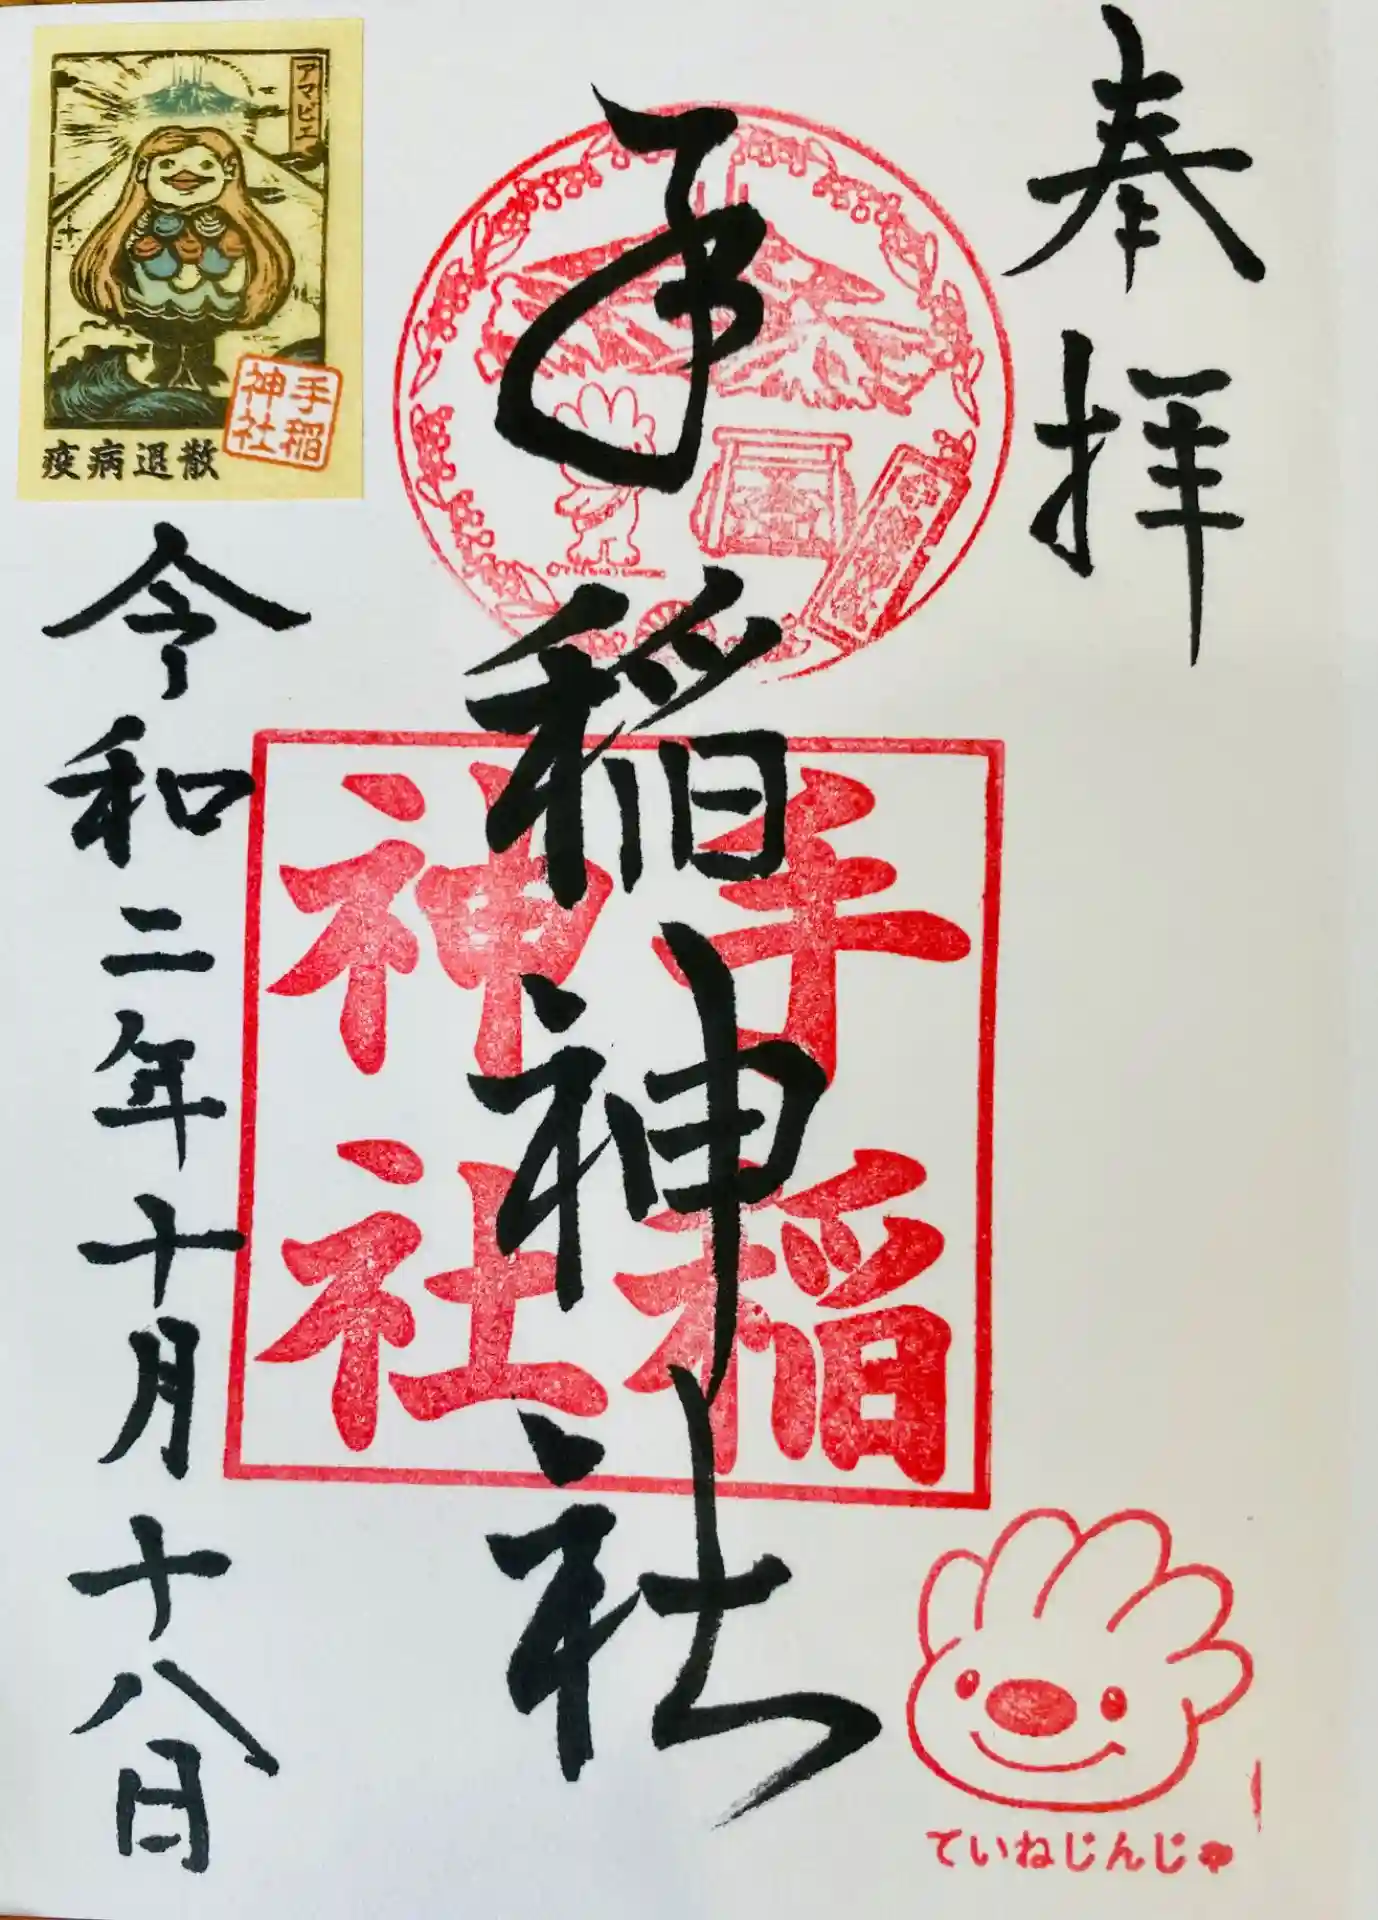 奉拝
手稲神社
令和二年十月十八日
アマビエ
疫病退散
手稲
神社
手稲
神社
ていねじんじゃ